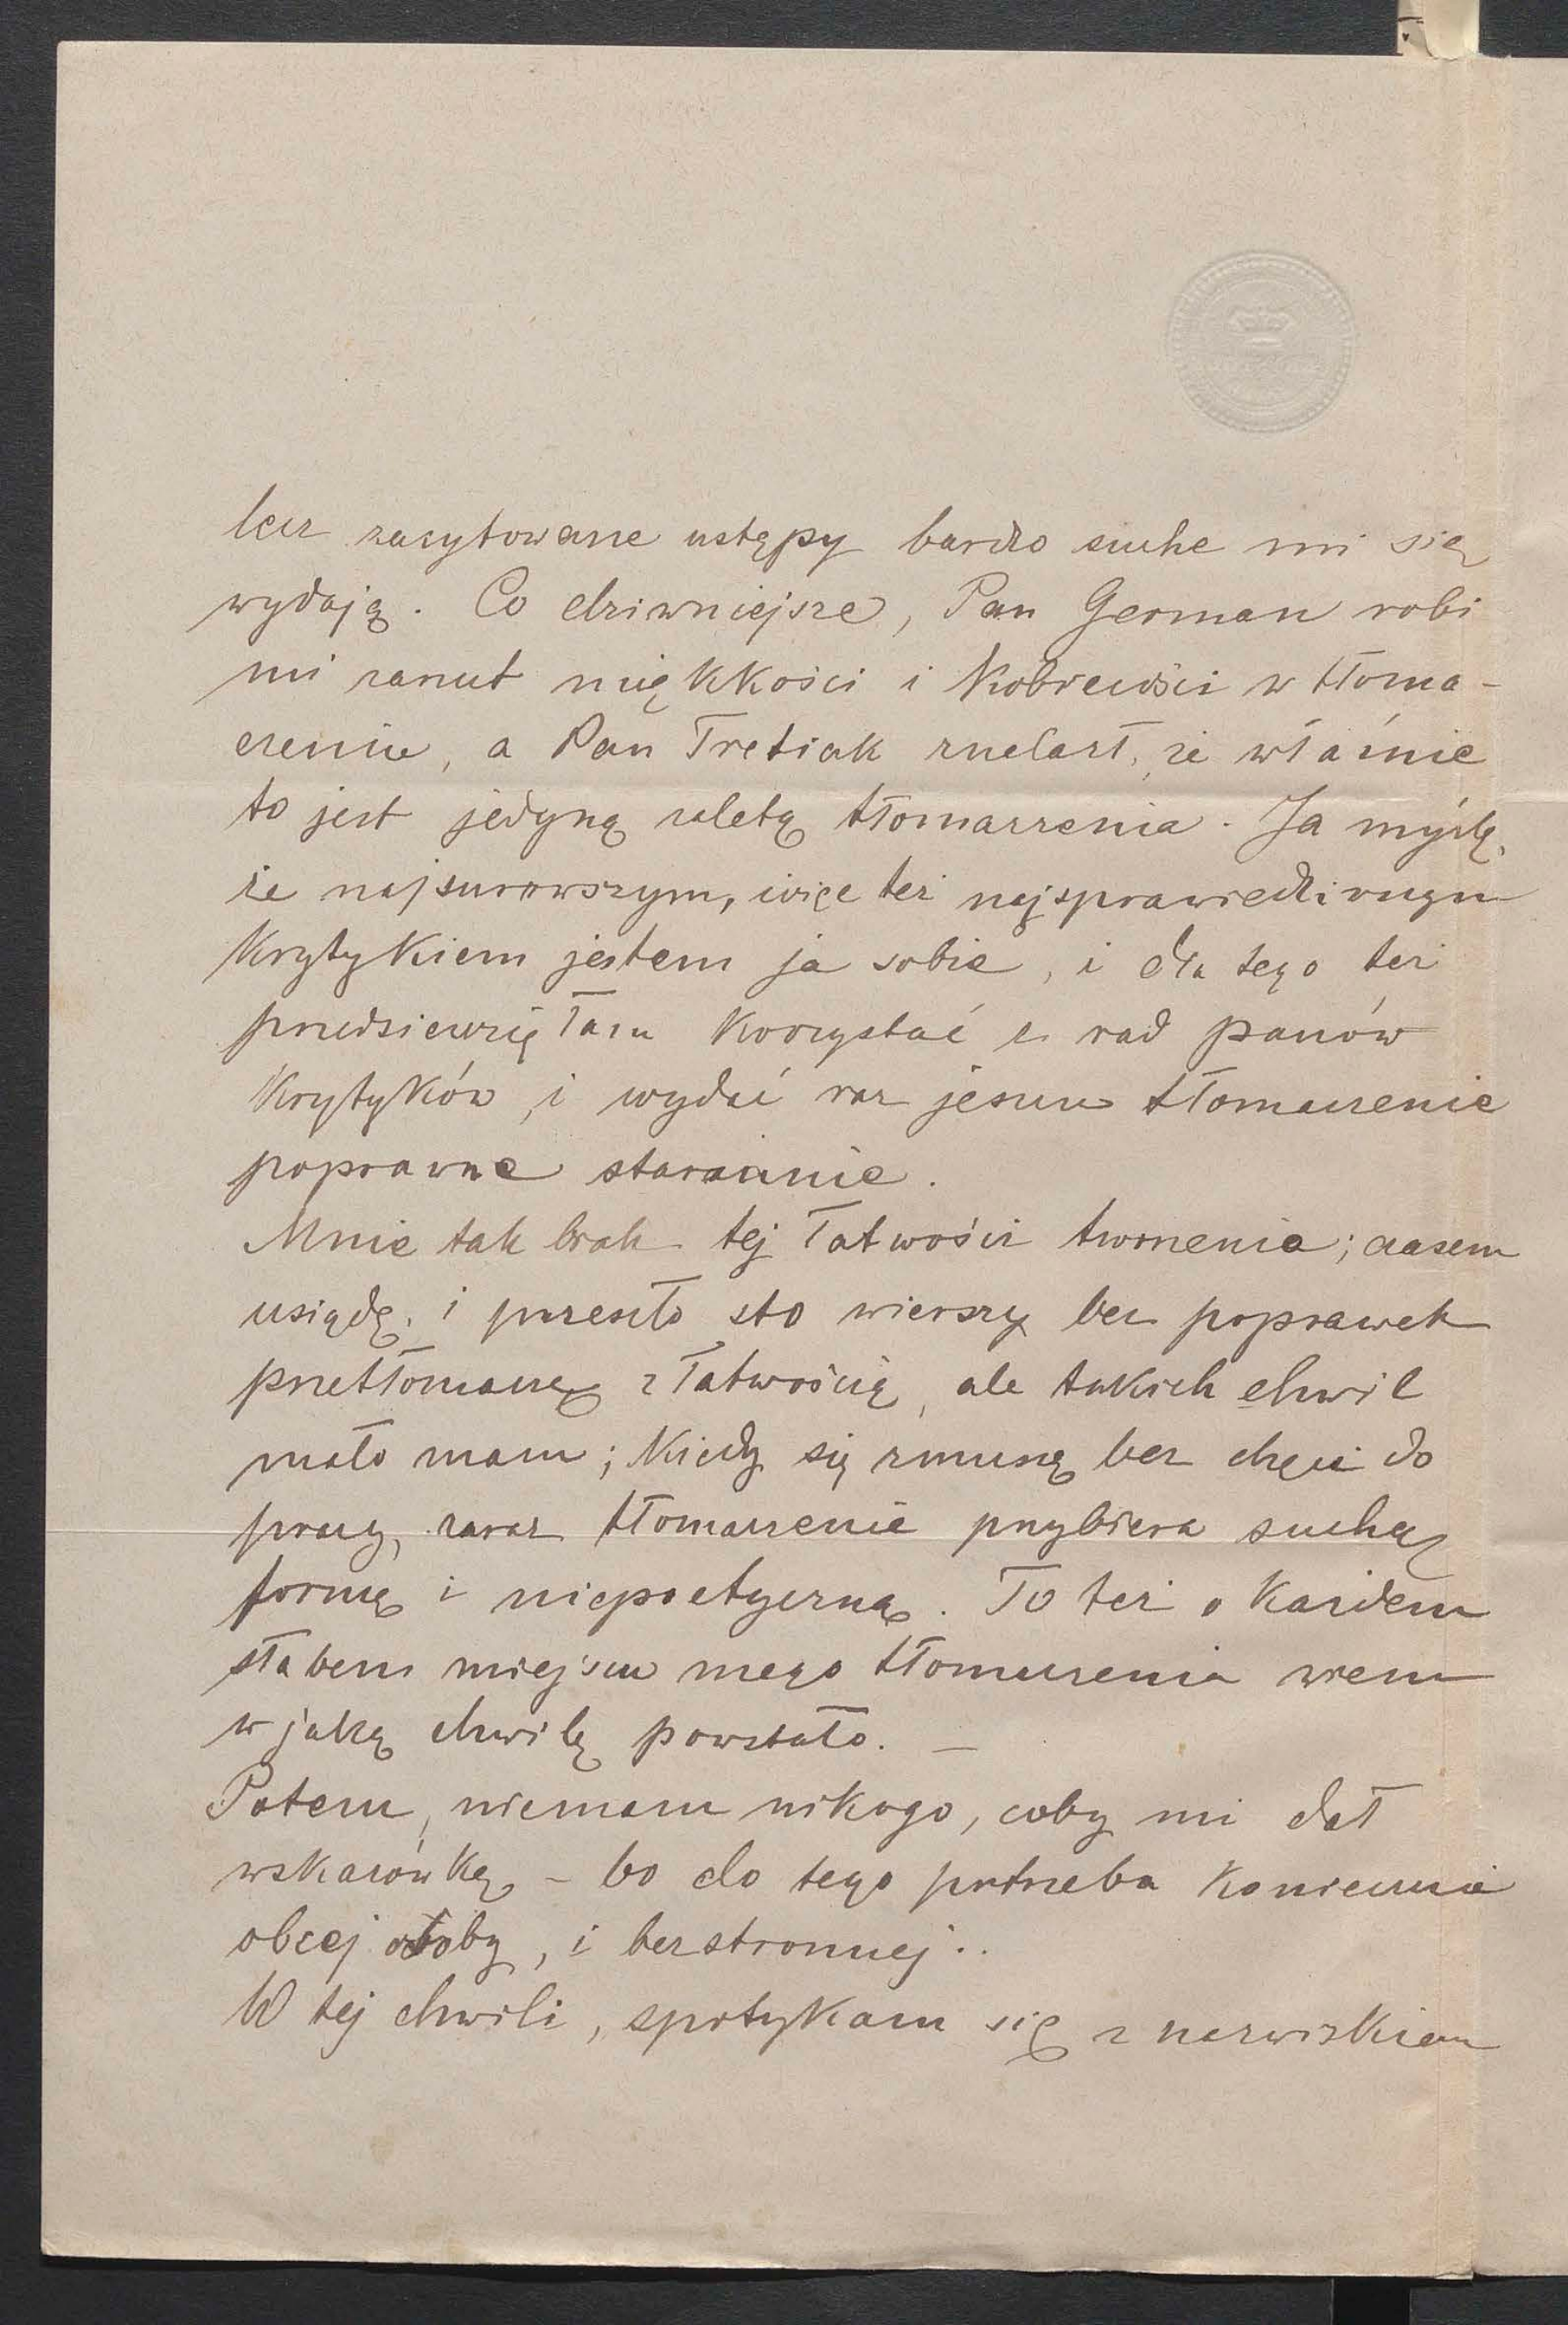 lecz zacytowane ustępy bardzo suche mi się
wydają. Co dziwniejsze, Pan German robi
mi zarzut miękkości i kobiecości w tłoma-
czeniu, a Pan Tretiak znalazł, że właśnie
to jest jedyną zaletą tłomaczenia. Ja myślę,
że najsurowszym, więc też najsprawiedliwszym
krytykiem jestem ja sobie, i dla tego też
przedsiewzięłam korzystać z rad panów
krytyków, i wydać raz jeszcze tłomaczenie
poprawne starannie.
Mnie tak brak tej łatwości tworzenia; czasem
usiądę, i przeszło sto wierszy bez poprawek
przetłomaczę z łatwością, ale takich chwil
mało mam; kiedy się zmuszę bez chęci do
pracy, zaraz tłomaczenie przybiera suchą
formę i niepoetyczną. To też o każdem
słabem miejscu mego tłomaczenia wiem
w jaką chwilę powstało. —
Potem, niemam nikogo, coby mi dał
wskazówkę – bo do tego potrzeba koniecznie
obcej osoby, i bezstronnej..
W tej chwili, spotykam się z nazwiskiem